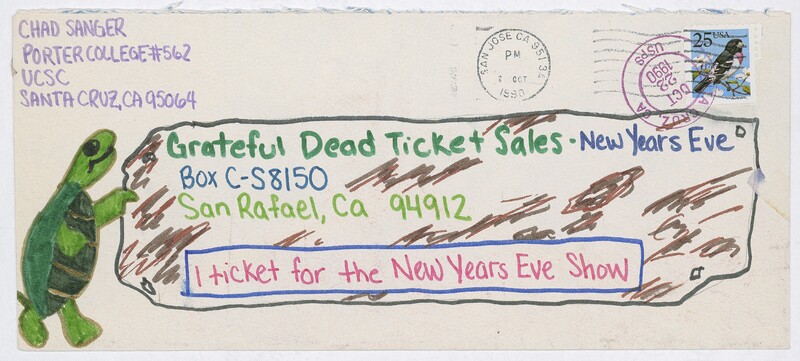 CHAD SANGER
PORTER COLLEGE #562
UCSC
SANTA CRUZ, CA 95064
SAN JOSE CA 951
PM
OCT
1990
25 USA
USPS
OCT
22
1990
CRUZ, CA
Grateful Dead Ticket Sales · New Years Eve
Box C-S8150
San Rafael, Ca 94912
1 ticket for the New Years Eve Show